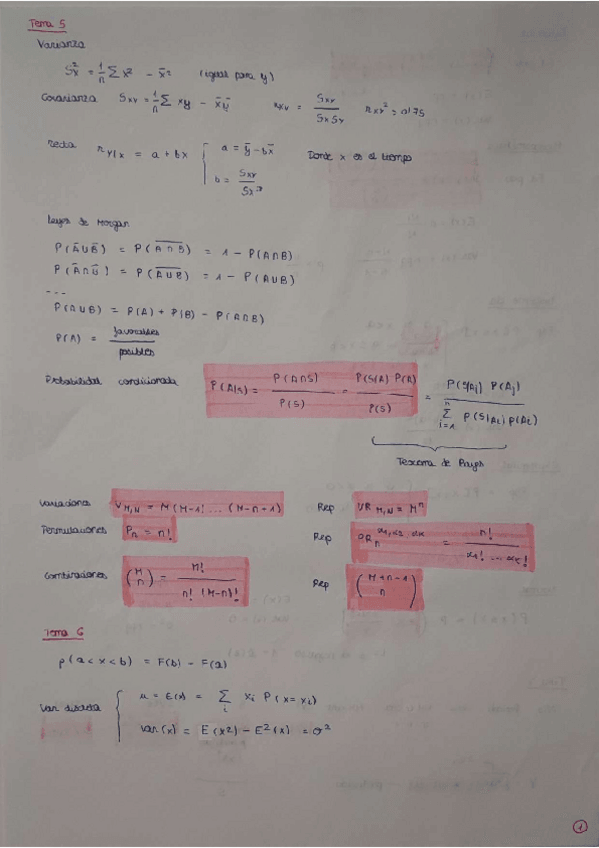 Tema 5
Varianza
Sx² = 1/n ∑ x² - x̄² (igual para y)
Covarianza Sxy = 1/n ∑ xy - x̄ȳ rxy = Sxy / Sx Sy rxy² > 0'75
recta ry/x = a + bx { a = ȳ - bx̄ Donde x es el tiempo
b = Sxy / Sx²
Leyes de Morgan
P(Ā ∪ B̄) = P(A̅∩̅B̅) = 1 - P(A∩B)
P(Ā ∩ B̄) = P(A̅∪̅B̅) = 1 - P(A∪B)
---
P(A∪B) = P(A) + P(B) - P(A∩B)
P(A) = favorables / posibles
Probabilidad condicionada P(A|S) = P(A∩S) / P(S) = P(S|A) P(A) / P(S) = P(S|Aj) P(Aj) / ∑ i=1 n P(S|Ai) P(Ai)
Teorema de Bayes
Variaciones VM,N = M(M-1)... (M-n+1) Rep VR M,N = Mⁿ
Permutaciones Pn = n! Rep PRn α1,α2,αk = n! / α1! ... αk!
Combinaciones (M n) = M! / n! (M-n)! Rep (M+n-1 n)
Tema 6
p(a < x < b) = F(b) - F(a)
Var discreta { μ = E(x) = ∑ i xi P(x = xi)
var(x) = E(x²) - E²(x) = σ²
1